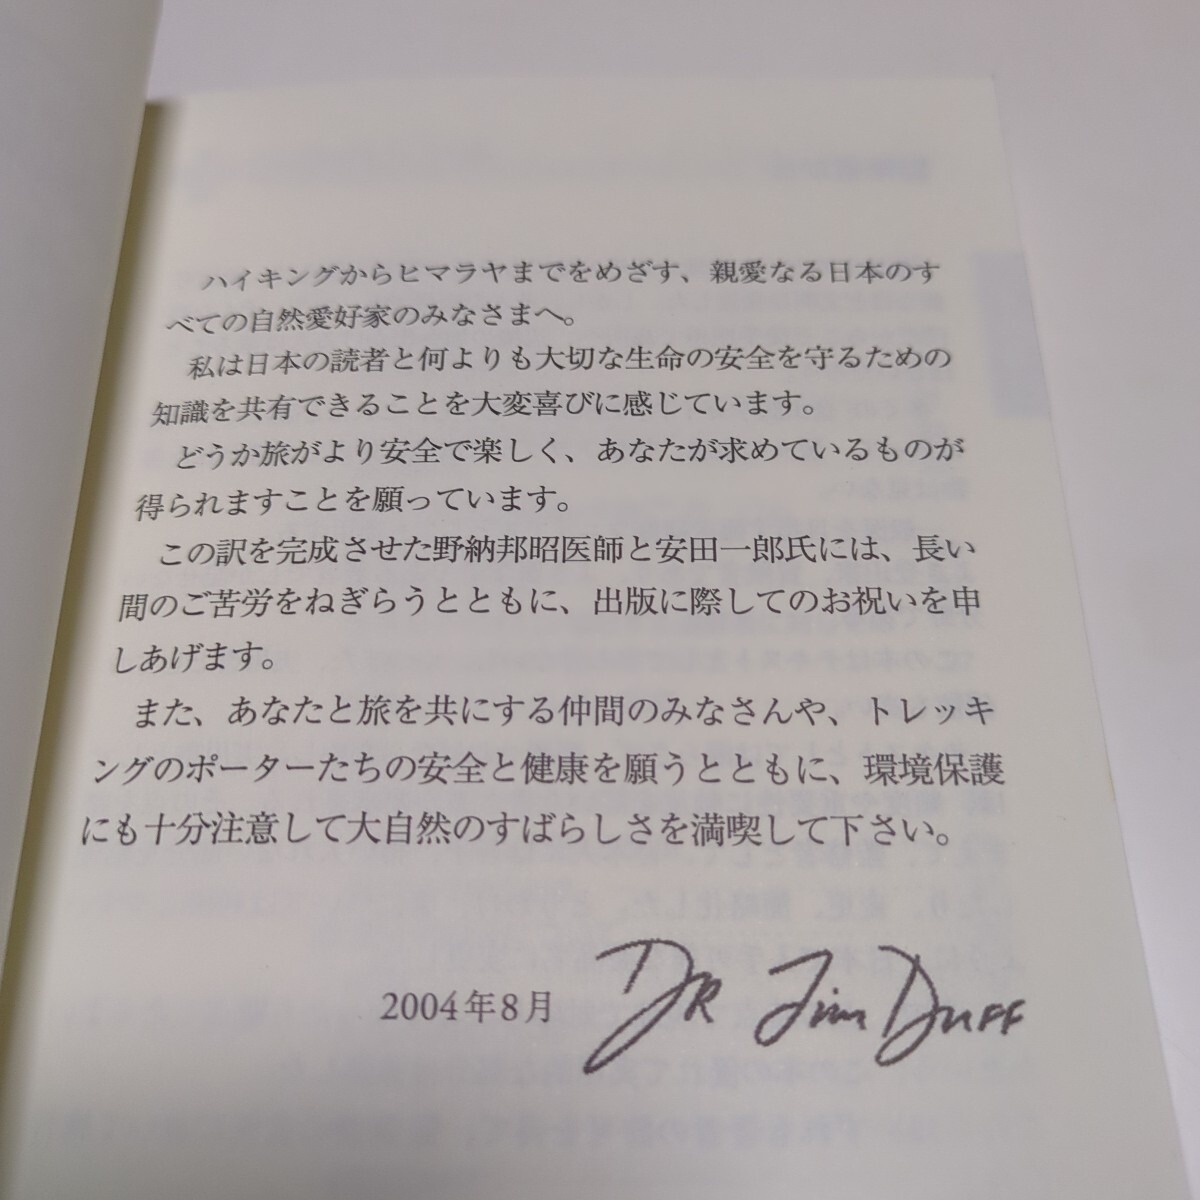 ハイキングからヒマラヤまでをめざす、親愛なる日本のす
べての自然愛好家のみなさまへ。
私は日本の読者と何よりも大切な生命の安全を守るための
知識を共有できることを大変喜びに感じています。
どうか旅がより安全で楽しく、あなたが求めているものが
得られますことを願っています。
この訳を完成させた野納邦昭医師と安田一郎氏には、長い
間のご苦労をねぎらうとともに、出版に際してのお祝いを申
しあげます。
また、あなたと旅を共にする仲間のみなさんや、トレッキ
ングのポーターたちの安全と健康を願うとともに、環境保護
にも十分注意して大自然のすばらしさを満喫して下さい。
2004年8月 DR Jim Duff